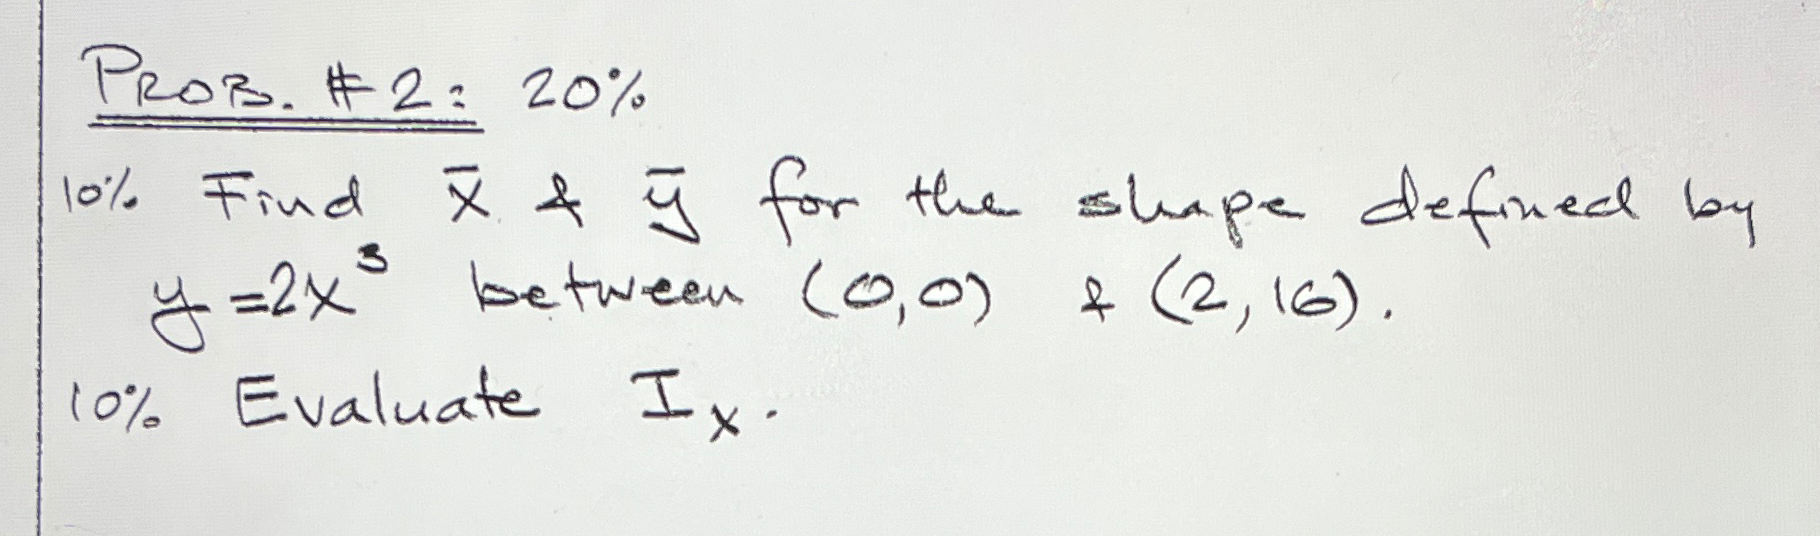 PROB. #2: 20%
10% Find x̄ & ȳ for the shape defined by
y=2x³ between (0,0) & (2,16).
10% Evaluate Iₓ.